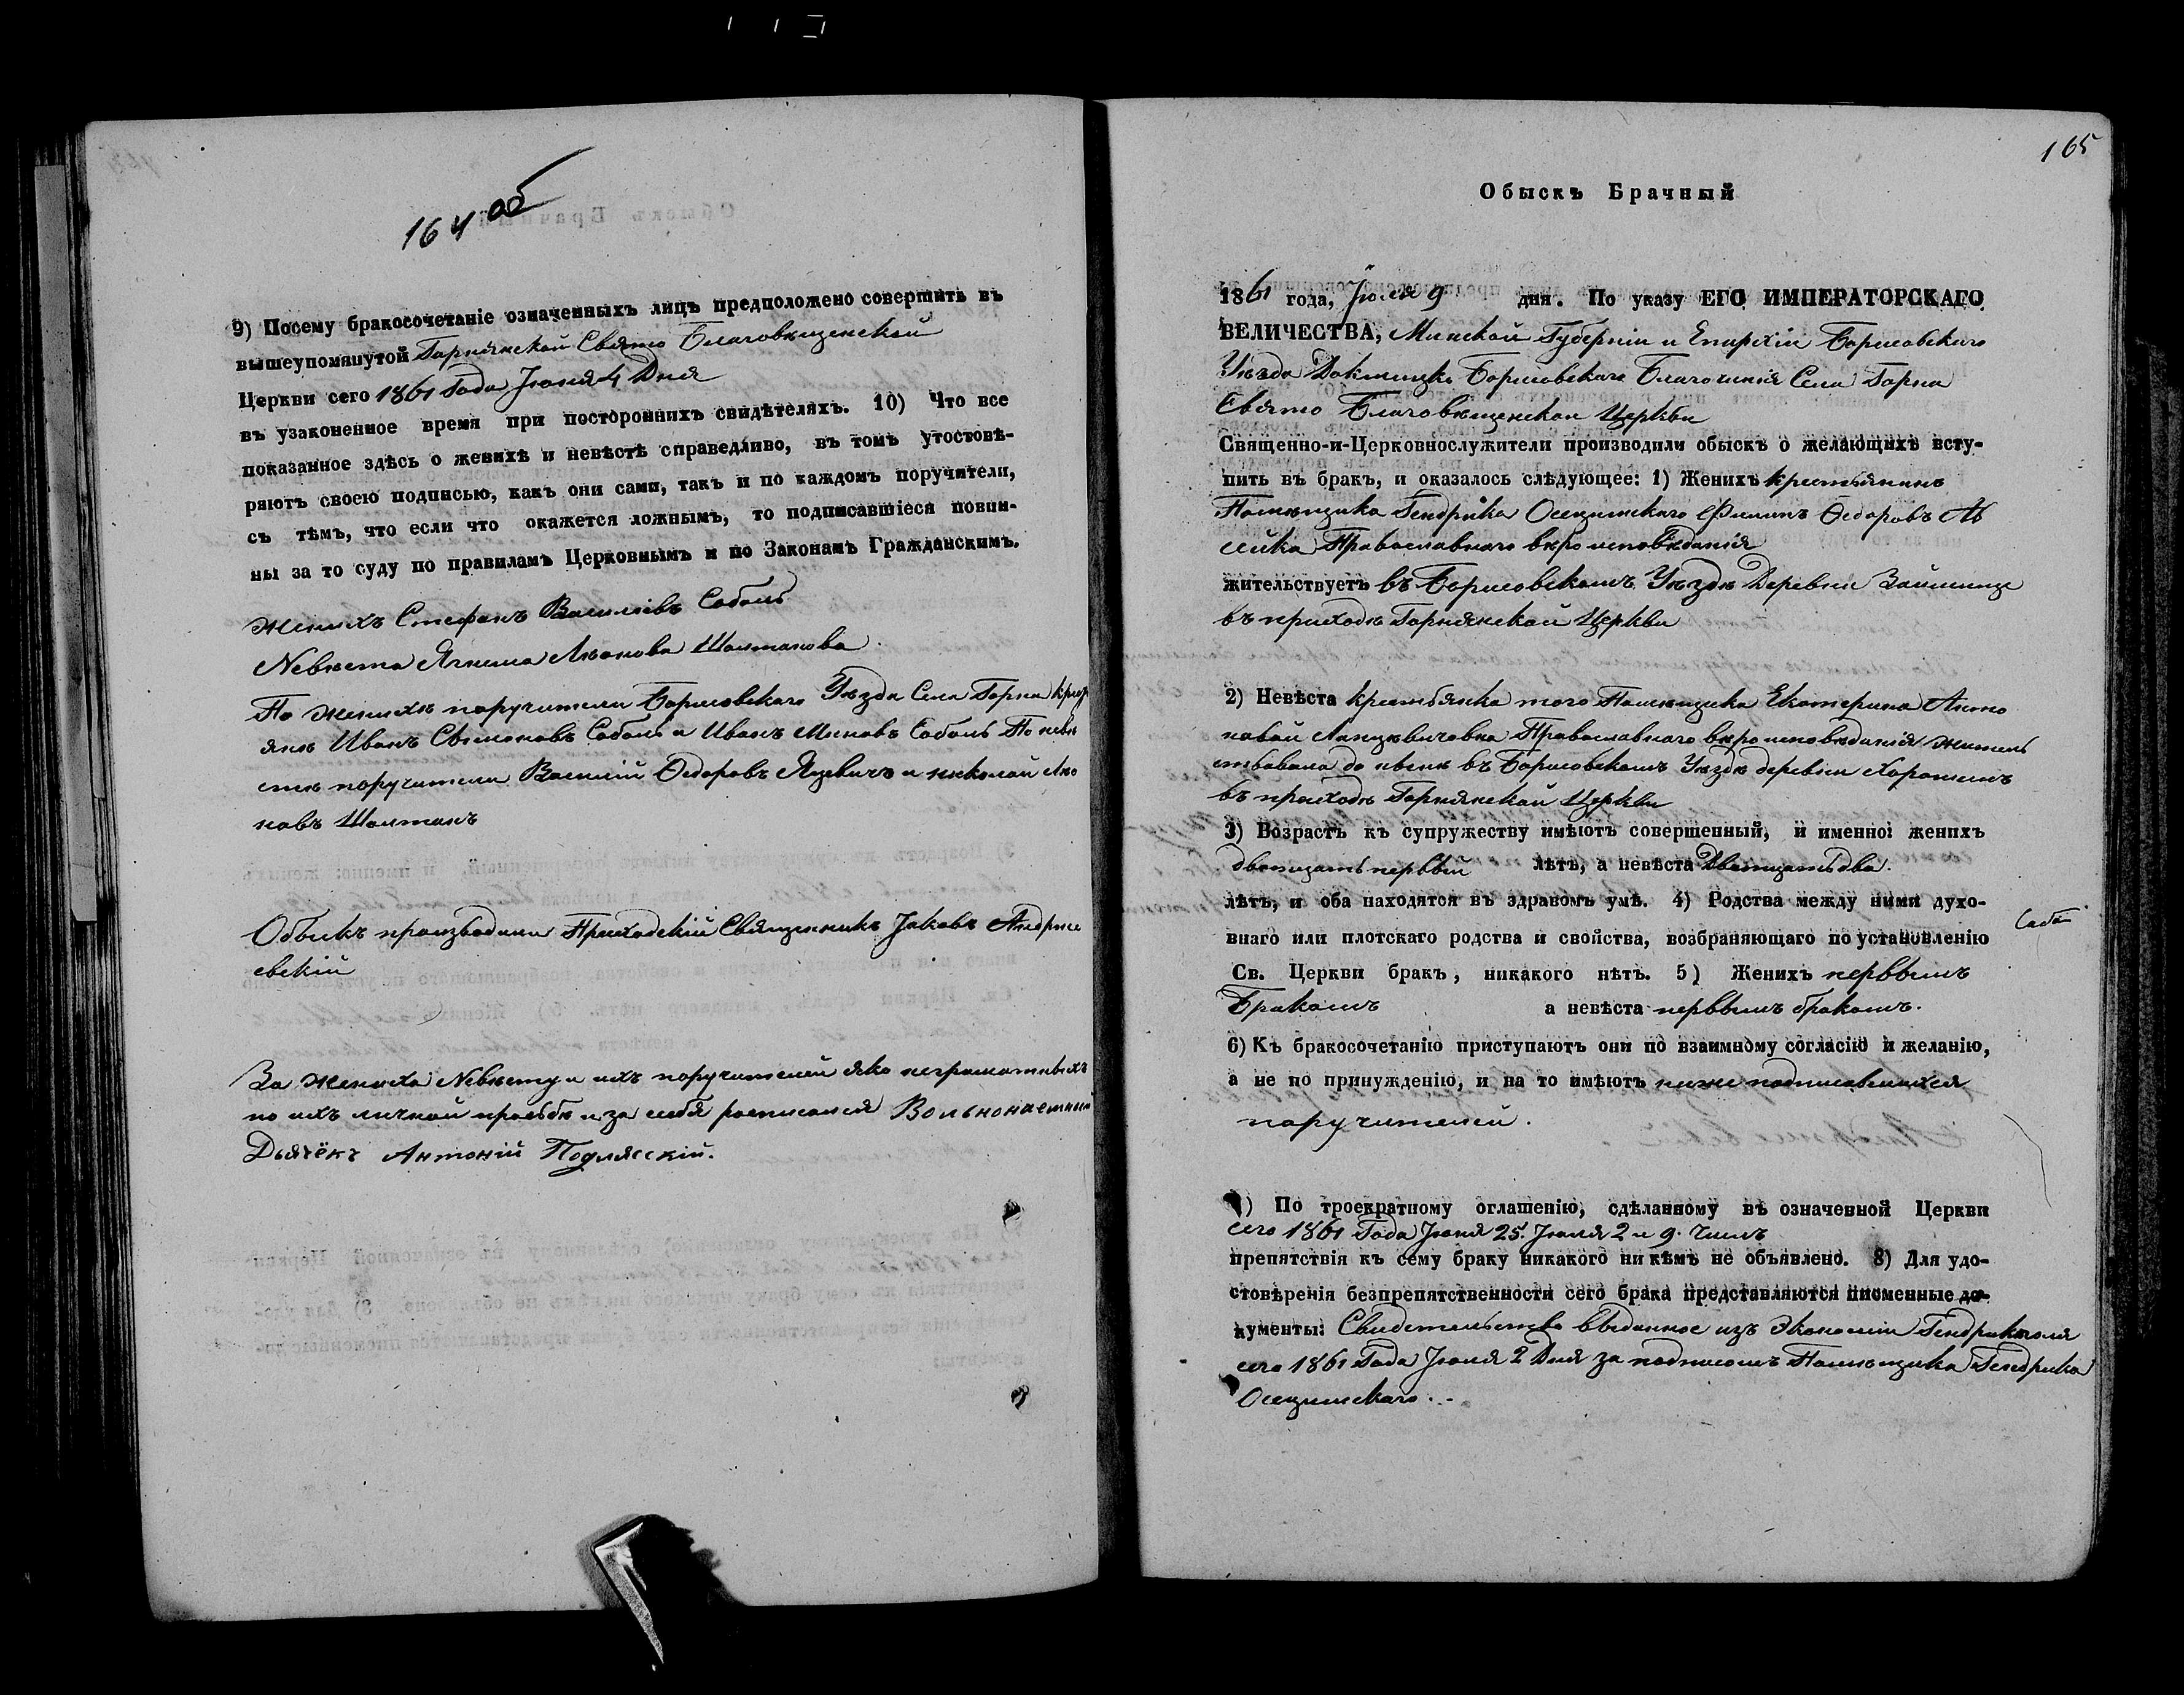 164 об
9) Посему бракосочетаніе означенныхъ лицъ предположено совершить въ
вышеупомянутой Горнянской Свято Благовѣщенской
Церкви сего 1861 Года Іюня 4 Дня
въ узаконенное время при постороннихъ свидѣтеляхъ. 10) Что все
показанное здѣсь о женихѣ и невѣстѣ справедливо, въ томъ утостовѣ-
ряютъ своею подписью, какъ они сами, такъ и по каждомъ поручители,
съ тѣмъ, что если что окажется ложнымъ, то подписавшіеся повин-
ны за то суду по правиламъ Церковнымъ и по Законамъ Гражданскимъ.
Женихъ Стефанъ Василіевъ Соболь
Невѣста Ягнеша Шолтанова
По женихѣ поручители Борисовскаго Уѣзда Села Горна
Иванъ Соболь и Иванъ Соболь По невѣ
стѣ поручители Василій Ѳедоровъ Яцевичъ и николай Ляо
новъ Шолтанъ
Обыскъ производили Приходскій Священникъ Іаковъ Андрые
евскій
За жениха Невѣсту и ихъ поручителей яко неграмотныхъ
по ихъ личной просьбѣ и за себя росписался Вольнонаемный
Дьячёкъ Антоній Подлясскій.
165
Обыскъ Брачный
1861 года, Іюля 9 дня. По указу ЕГО ИМПЕРАТОРСКАГО
ВЕЛИЧЕСТВА, Минской Губерніи и Епархіи Борисовскаго
Уѣзда Докшицко Борисовскаго Благочинія Села Горна
Свято Благовѣщенской Церкви
Священно-и-Церковнослужители производили обыскъ о желающихъ всту-
пить въ бракъ, и оказалось слѣдующее: 1) Женихъ крестьянинъ
Помѣщика Гендрика Осецимскаго Филипъ Ѳедоровъ
Православнаго вѣроисповѣданія
жительствуетъ въ Борисовскомъ Уѣздѣ Деревни
въ приходѣ Горнянской Церкви
2) Невѣста крестьянка того Помѣщика Екатерина Анто
новой Лапцѣвичовна Православнаго вѣроисповѣданія житель
ствовала до нынѣ въ Борисовскомъ Уѣздѣ деревни
въ приходѣ Горнянской Церкви
3) Возрастъ къ супружеству имѣютъ совершенный, и именно: женихъ
двотцать первый лѣтъ, а невѣста Двотцать два.
лѣтъ, и оба находятся въ здравомъ умѣ. 4) Родства между ними духо-
внаго или плотскаго родства и свойства, возбраняющаго по установленію
Св. Церкви бракъ, никакого нѣтъ. 5) Женихъ первымъ
Бракомъ а невѣста первымъ бракомъ.
6) Къ бракосочетанію приступаютъ они по взаимному согласію и желанію,
а не по принужденію, и на то имѣютъ ниже подписавшихся
поручителей.
) По троекратному оглашенію, сдѣланному въ означенной Церкви
сего 1861 Года Іюня 25. Іюля 2 и 9. Числъ
препятствія къ сему браку никакого ни кѣмъ не объявлено. 8) Для удо-
стовѣренія безпрепятственности сего брака представляются писменные до-
кументы: Свидетельство выданное изъ Экономіи Гендрикполя
сего 1861 Года Іюля 2 Дня за подписомъ Помѣщика Гендрика
Осецимскаго.